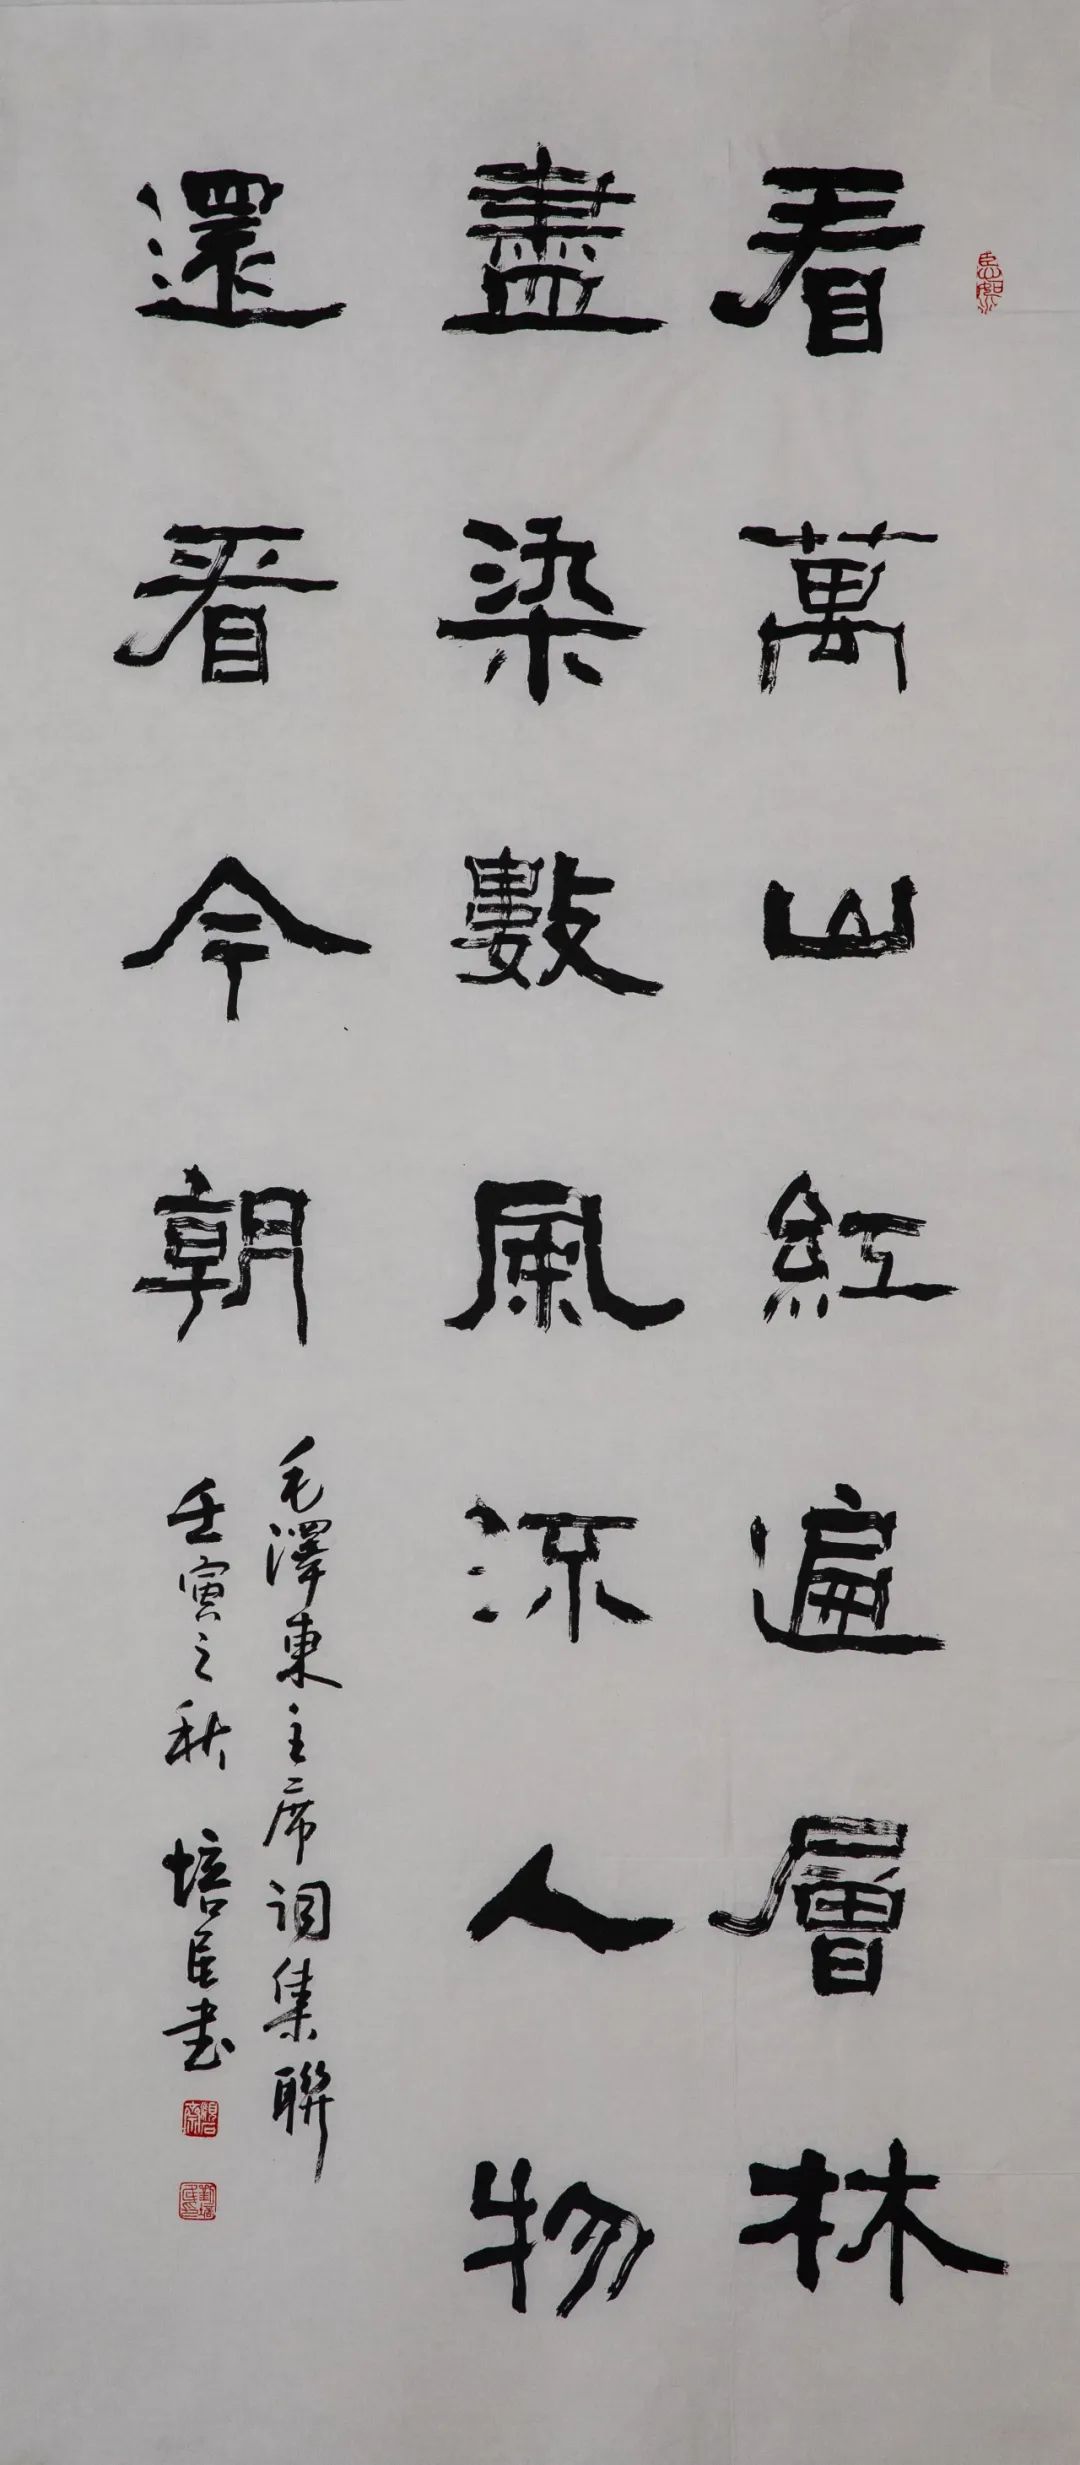 看萬山紅遍層林
盡染數風流人物
還看今朝
毛澤東主席词集聯
壬寅之秋 培臣书